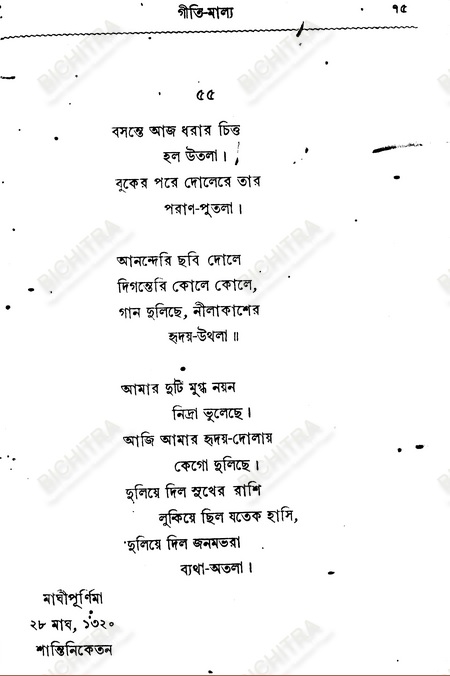 গীতি-মাল্য ৭৫
৫৫
বসন্তে আজ ধরার চিত্ত
হল উতলা।
বুকের পরে দোলেরে তার
পরাণ-পুতলা।
আনন্দেরি ছবি দোলে
দিগন্তেরি কোলে কোলে,
গান দুলিছে, নীলাকাশের
হৃদয়-উথলা॥
আমার দুটি মুগ্ধ নয়ন
নিদ্রা ভুলেছে।
আজি আমার হৃদয়-দোলায়
কেগো দুলিছে।
দুলিয়ে দিল সুখের রাশি
লুকিয়ে ছিল যতেক হাসি,
দুলিয়ে দিল জনমভরা
ব্যথা-অতলা।
মাঘীপূর্ণিমা
২৮ মাঘ, ১৩২০
শান্তিনিকেতন
BICHITRA
BICHITRA
BICHITRA
BICHITRA
BICHITRA
BICHITRA